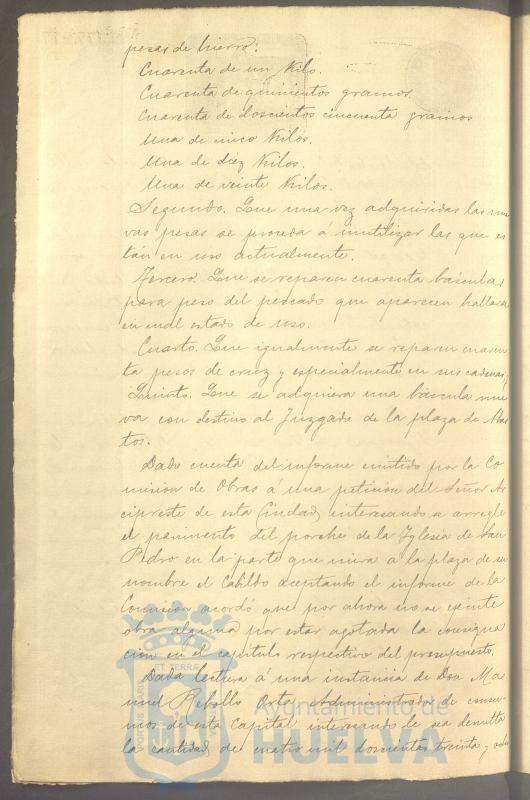 pesas de hierro:
Cuarenta de un Kilo.
Cuarenta de quinientos gramos
Cuarenta de doscientos cincuenta gramos
Una de cinco Kilos.
Una de diez Kilos.
Una de veinte Kilos.
Segundo. Que una vez adquiridas las nue
vas pesas se proceda á inutilizar las que es
tán en uso actualmente.
Tercero. Que se reparen cuarenta básculas
para peso del pescado que aparecen hallarse
en mal estado de uso.
Cuarto. Que igualmente se reparen cuaren
ta pesos de cruz y especialmente en sus cadenas,
Quinto. Que se adquiera una báscula nue
va con destino al Juzgado de la plaza de Abas
tos.
Dado cuenta del informe emitido por la Co
misión de Obras á una petición del Señor Ar
cipreste de esta Ciudad, interesando se arregle
el pavimento del porche de la Iglesia de San
Pedro en la parte que mira a la plaza de su
nombre el Cabildo aceptando el informe de la
Comisión acordó que por ahora no se ejecute
obra alguna por estar agotada la consigna
ción en el capítulo respectivo del presupuesto.
Dada lectura á una instancia de Don Ma
nuel Rebollo Orta, Administrador de consu-
mos de esta Capital interesando le sea devuelta
la cantidad de cuatro mil doscientas treinta y ocho
PORTUS MARIS
ET TERRÆ
Ayuntamiento de
HUELVA